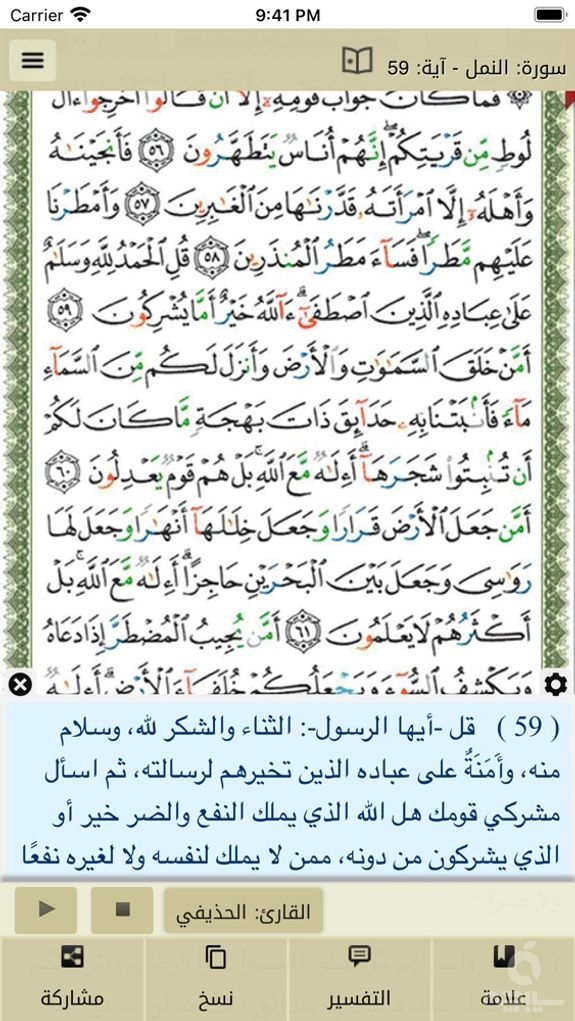 Carrier 9:41 PM
سورة: النمل - آية: 59
فَمَا كَانَ جَوَابَ قَوْمِهِۦٓ إِلَّآ أَن قَالُوٓا۟ أَخْرِجُوٓا۟ ءَالَ
لُوطٍ مِّن قَرْيَتِكُمْ ۖ إِنَّهُمْ أُنَاسٌ يَتَطَهَّرُونَ ٥٦ فَأَنجَيْنَٰهُ
وَأَهْلَهُۥٓ إِلَّا ٱمْرَأَتَهُۥ قَدَّرْنَٰهَا مِنَ ٱلْغَٰبِرِينَ ٥٧ وَأَمْطَرْنَا
عَلَيْهِم مَّطَرًا ۖ فَسَآءَ مَطَرُ ٱلْمُنذَرِينَ ٥٨ قُلِ ٱلْحَمْدُ لِلَّهِ وَسَلَٰمٌ
عَلَىٰ عِبَادِهِ ٱلَّذِينَ ٱصْطَفَىٰٓ ۗ ءَآللَّهُ خَيْرٌ أَمَّا يُشْرِكُونَ ٥٩
أَمَّنْ خَلَقَ ٱلسَّمَٰوَٰتِ وَٱلْأَرْضَ وَأَنزَلَ لَكُم مِّنَ ٱلسَّمَآءِ
مَآءً فَأَنۢبَتْنَا بِهِۦ حَدَآئِقَ ذَاتَ بَهْجَةٍ مَّا كَانَ لَكُمْ
أَن تُنۢبِتُوا۟ شَجَرَهَآ ۗ أَءِلَٰهٌ مَّعَ ٱللَّهِ ۚ بَلْ هُمْ قَوْمٌ يَعْدِلُونَ ٦٠
أَمَّن جَعَلَ ٱلْأَرْضَ قَرَارًا وَجَعَلَ خِلَٰلَهَآ أَنْهَٰرًا وَجَعَلَ لَهَا
رَوَٰسِىَ وَجَعَلَ بَيْنَ ٱلْبَحْرَيْنِ حَاجِزًا ۗ أَءِلَٰهٌ مَّعَ ٱللَّهِ ۚ بَلْ
أَكْثَرُهُمْ لَا يَعْلَمُونَ ٦١ أَمَّن يُجِيبُ ٱلْمُضْطَرَّ إِذَا دَعَاهُ
وَيَكْشِفُ ٱلسُّوٓءَ وَيَجْعَلُكُمْ خُلَفَآءَ ٱلْأَرْضِ ۗ أَءِلَٰهٌ
( 59 ) قل -أيها الرسول-: الثناء والشكر لله، وسلام
منه، وأَمَنَةٌ على عباده الذين تخيرهم لرسالته، ثم اسأل
مشركي قومك هل الله الذي يملك النفع والضر خير أو
الذي يشركون من دونه، ممن لا يملك لنفسه ولا لغيره نفعًا
ولا ضرا؟
القارئ: الحذيفي
علامة
التفسير
نسخ
مشاركة